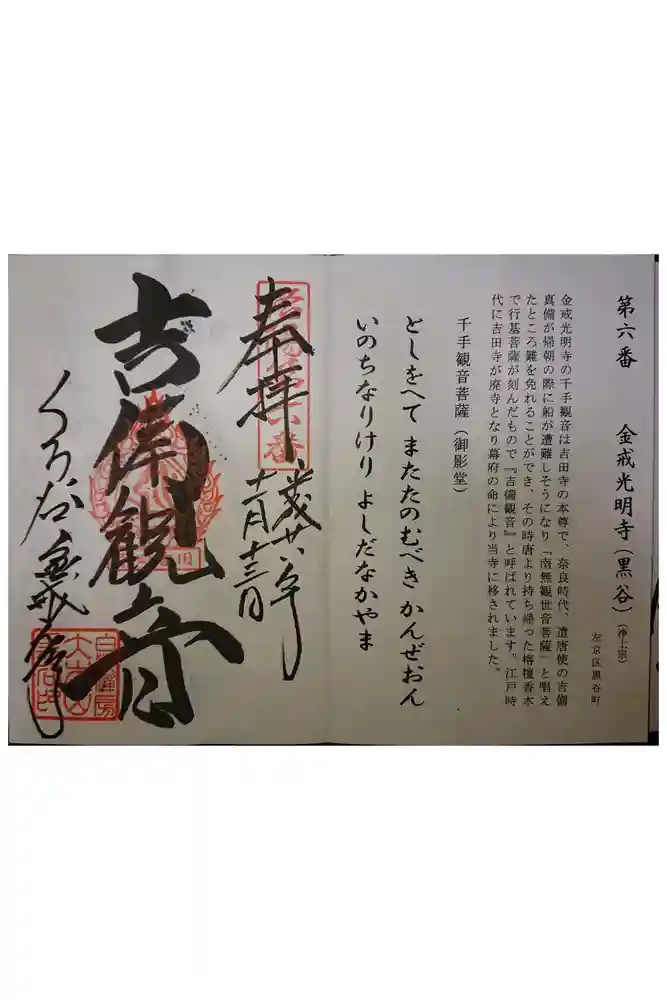 第六番 金戒光明寺(黒谷)(浄土宗)
左京区黒谷町
金戒光明寺の千手観音は吉田寺の本尊で、奈良時代、遣唐使の吉備
真備が帰朝の際に船が遭難しそうになり「南無観世音菩薩」と唱え
たところ難を免れることができ、その時唐より持ち帰った栴檀香木
で行基菩薩が刻んだもので『吉備観音』と呼ばれています。江戸時
代に吉田寺が廃寺となり幕府の命により当寺に移されました。
千手観音菩薩(御影堂)
としをへて またたのむべき かんぜおん
いのちなりけり よしだなかやま
奉拝
十月十三日
吉備観音
くろ谷金戒光明寺